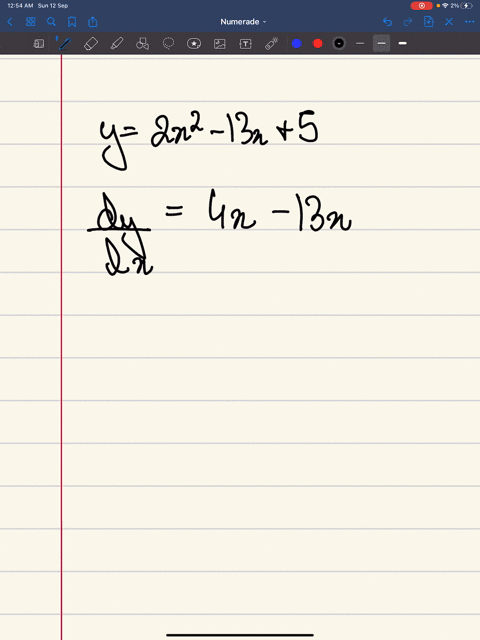 12:54 AM Sun 12 Sep 2%
Numerade
y = 2x² - 13x + 5
dy/dx = 4x - 13x